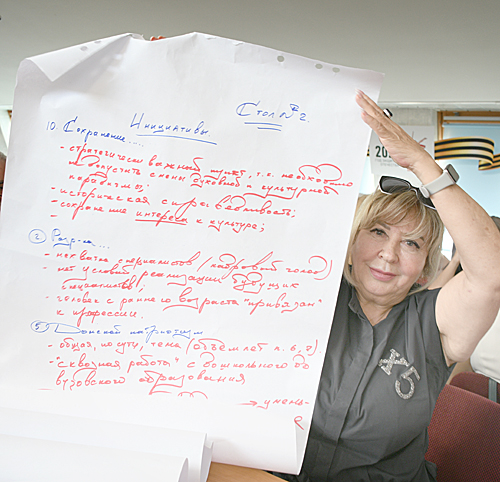 Стол №2.
Инициативы
10. Сохранение....
- стратегически важный пункт, т.е. необходимо
не допустить смены духовной и культурной
парадигмы;
- историческая справедливость;
- сохранение интереса к культуре;
-
2. Разр-ка...
- нехватка специалистов (кадровой голод)
- нет условий реализации будущих
специалистов;
- человек с раннего возраста "привязан"
к профессии.
5. Донской патриотизм
- общая, по сути, тема (объём. п. 6, 7).
- "сквозная работа" с дошкольного до
вузовского образования
→ умень-
20